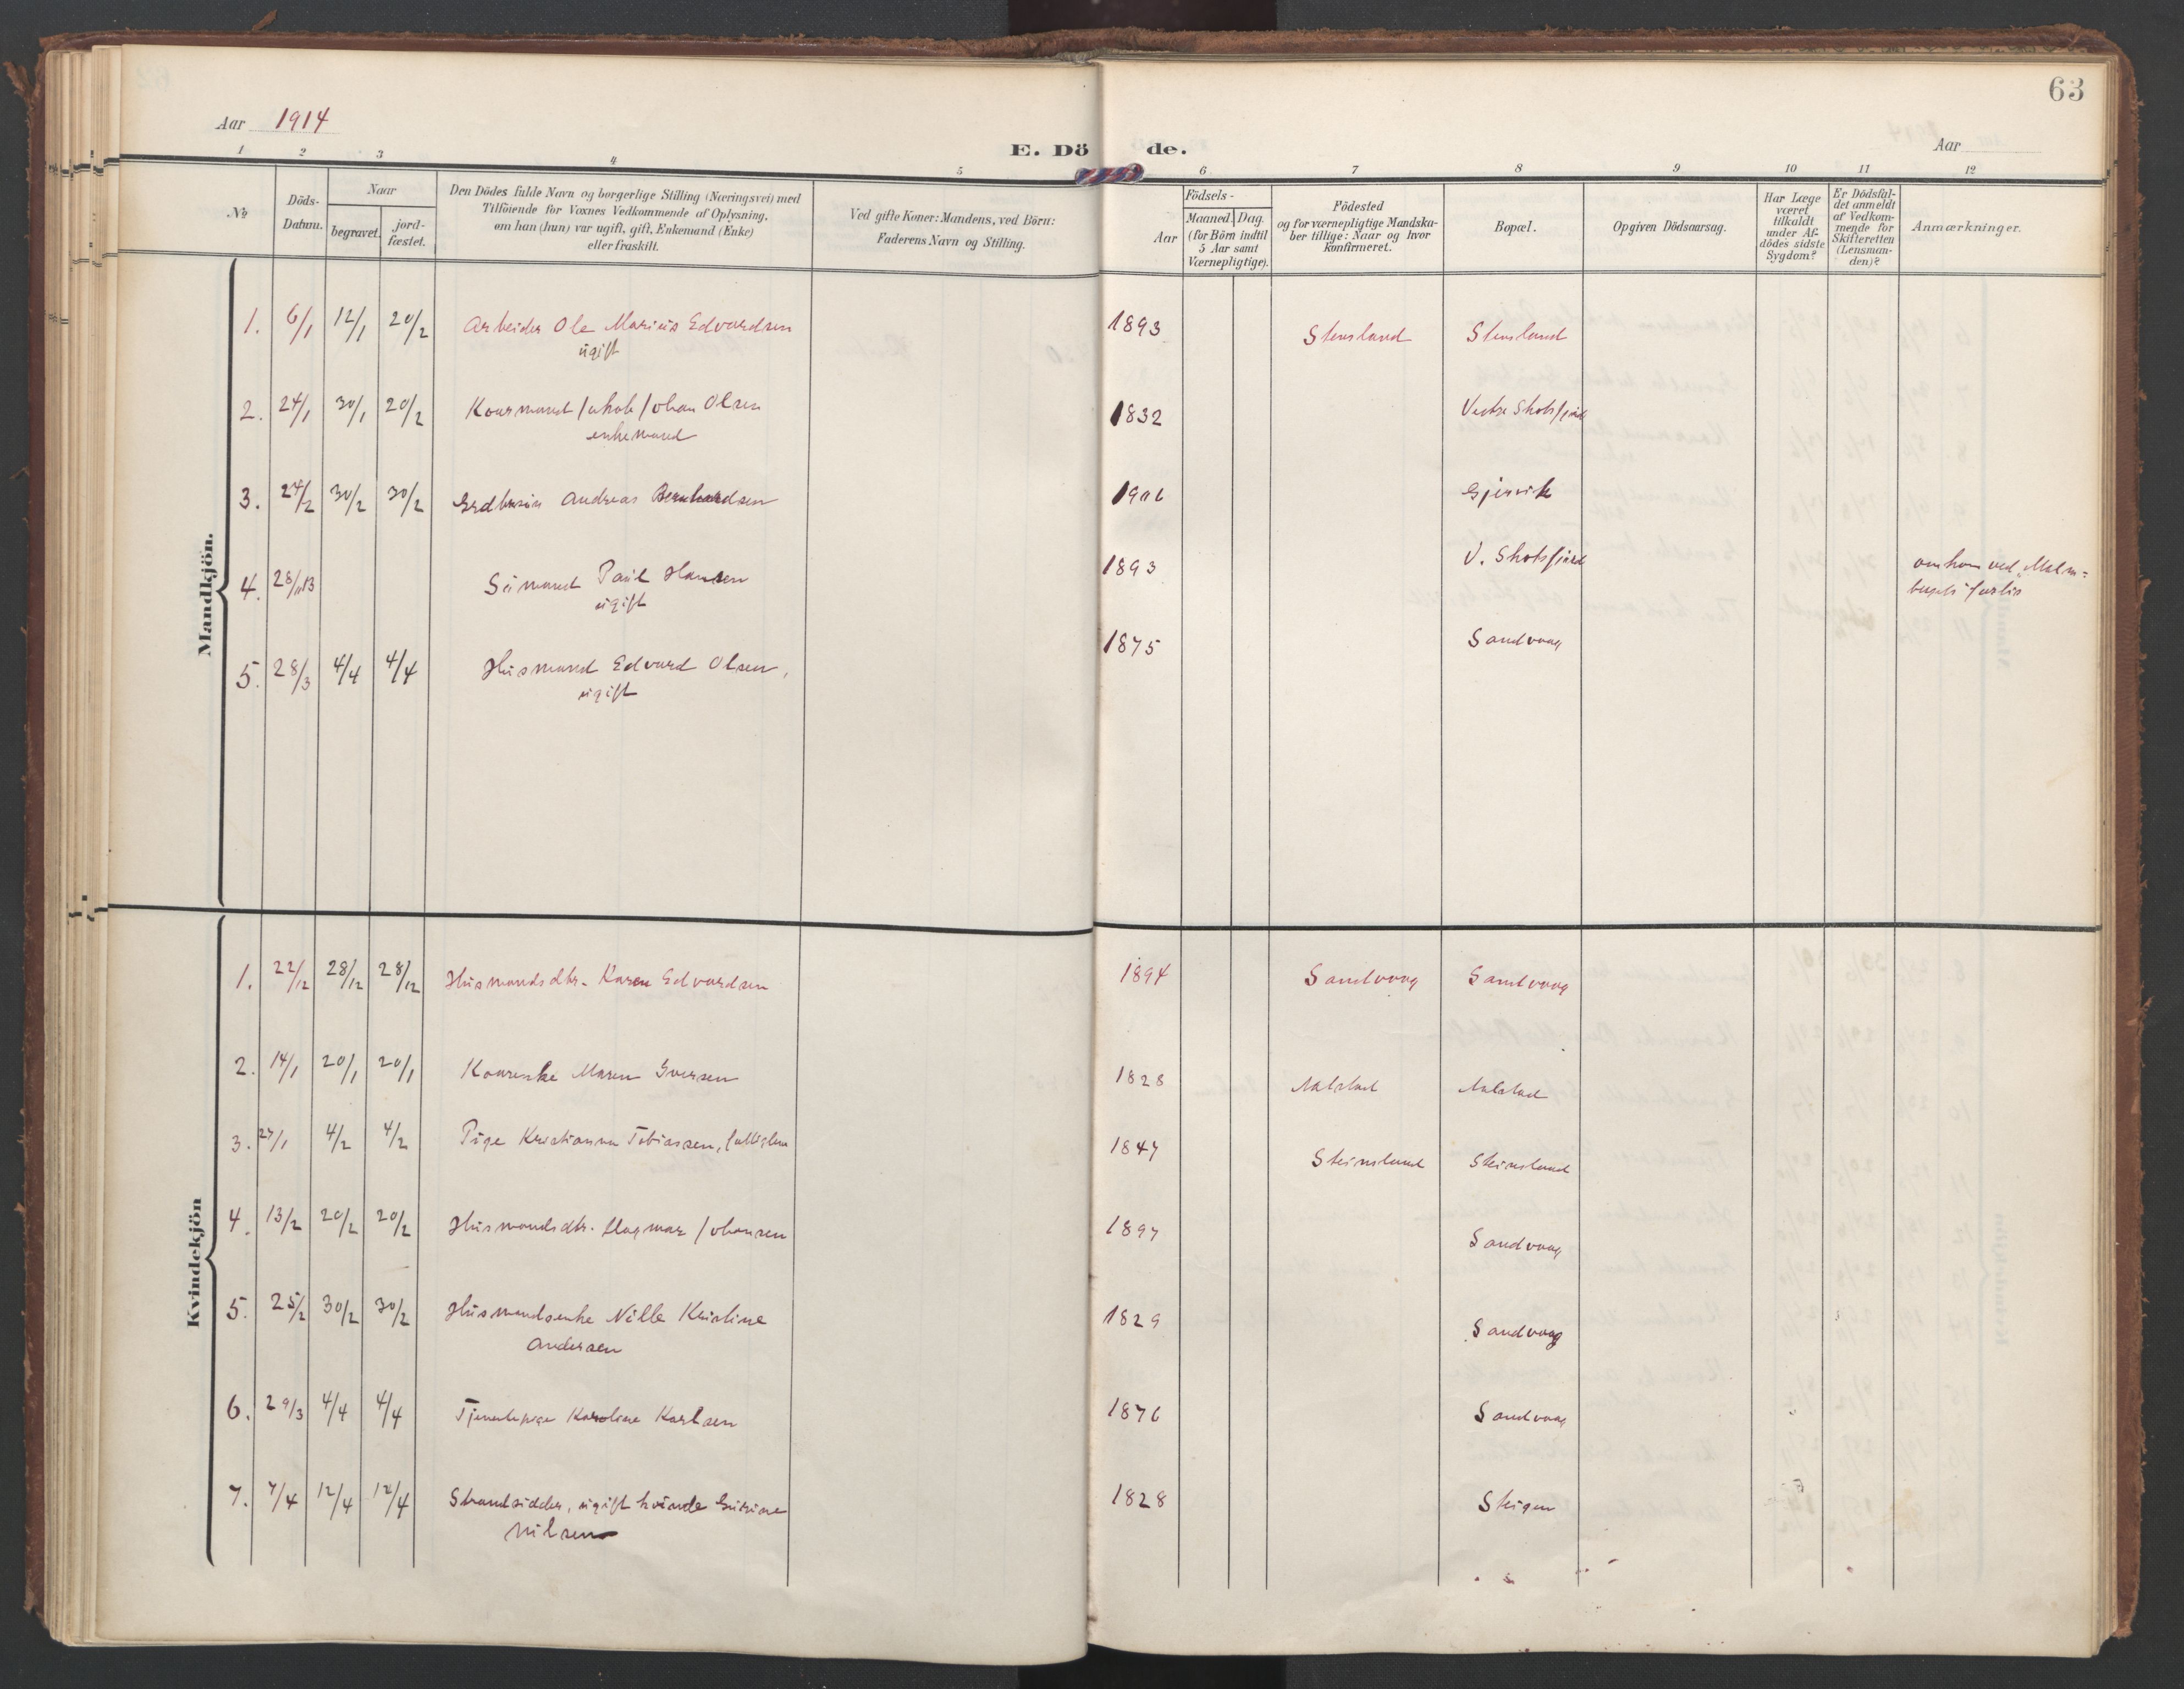 63
Aar 1914
Aar
E. Dö de.
1 2 3 4 5 6 7 8 9 10 11 12
No
Döds-
Datum.
Naar
begravet.
jord-
fæstet.
Den Dödes fulde Navn og borgerlige Stilling (Næringsvei) med
Tilföiende for Voxnes Vedkommende af Oplysning,
om han (hun) var ugift, gift, Enkemand (Enke)
eller fraskilt.
Ved gifte Koner: Mandens, ved Börn:
Faderens Navn og Stilling.
Födsels-
Aar
Maaned. Dag.
(for Börn indtil
5 Aar samt
Værnepligtige).
Födested
og for værnepligtige Mandska-
ber tillige: Naar og hvor
Konfirmeret.
Bopæl.
Opgiven Dödsaarsag.
Har Læge
været
tilkaldt
under Af-
dödes sidste
Sygdom?
Er Dödsfal-
det anmeldt
af Vedkom-
mende for
Skifteretten
(Lensman-
den)?
Anmærkninger.
Mandkjön.
1. 6/1 12/1 20/2 Arbeider Ole Marius Edvardsen 1893 Stensland Stensland
ugift
2. 24/1 30/1 20/2 Kaarmand Jakob Johan Olsen 1832 Vestre Skotsfjord
enkemand
3. 24/2 30/2 30/2 Andreas Bernhardsen 1906 Gjervik
4. 28/11 13 Sømand Paul Hansen 1893 V. Skotsfjord omkom ved "Malm-
ugift forlis
5. 28/3 4/4 4/4 Husmand Edvard Olsen, 1875 Sandvaag
ugift
Kvindekjön
1. 22/12 28/12 28/12 Husmandsdtr. Karen Edvardsen 1894 Sandvaag Sandvaag
2. 14/1 20/1 20/1 Kaarenke Maren Iversen 1828 Aalstad Aalstad
3. 27/1 4/2 4/2 Pige Kristianna Tobiassen, fattiglem 1847 Steinsland Steinsland
4. 13/2 20/2 20/2 Husmandsdtr. Dagmar Johansen 1897 Sandvaag
5. 25/2 30/2 30/2 Husmandsenke Nille Kristine 1829 Sandvaag
Andersen
6. 29/3 4/4 4/4 Tjenestepige Karoline Karlsen 1876 Sandvaag
7. 7/4 12/4 12/4 Strandsidder, ugift kvinde 1828 Steigen
Nilsen